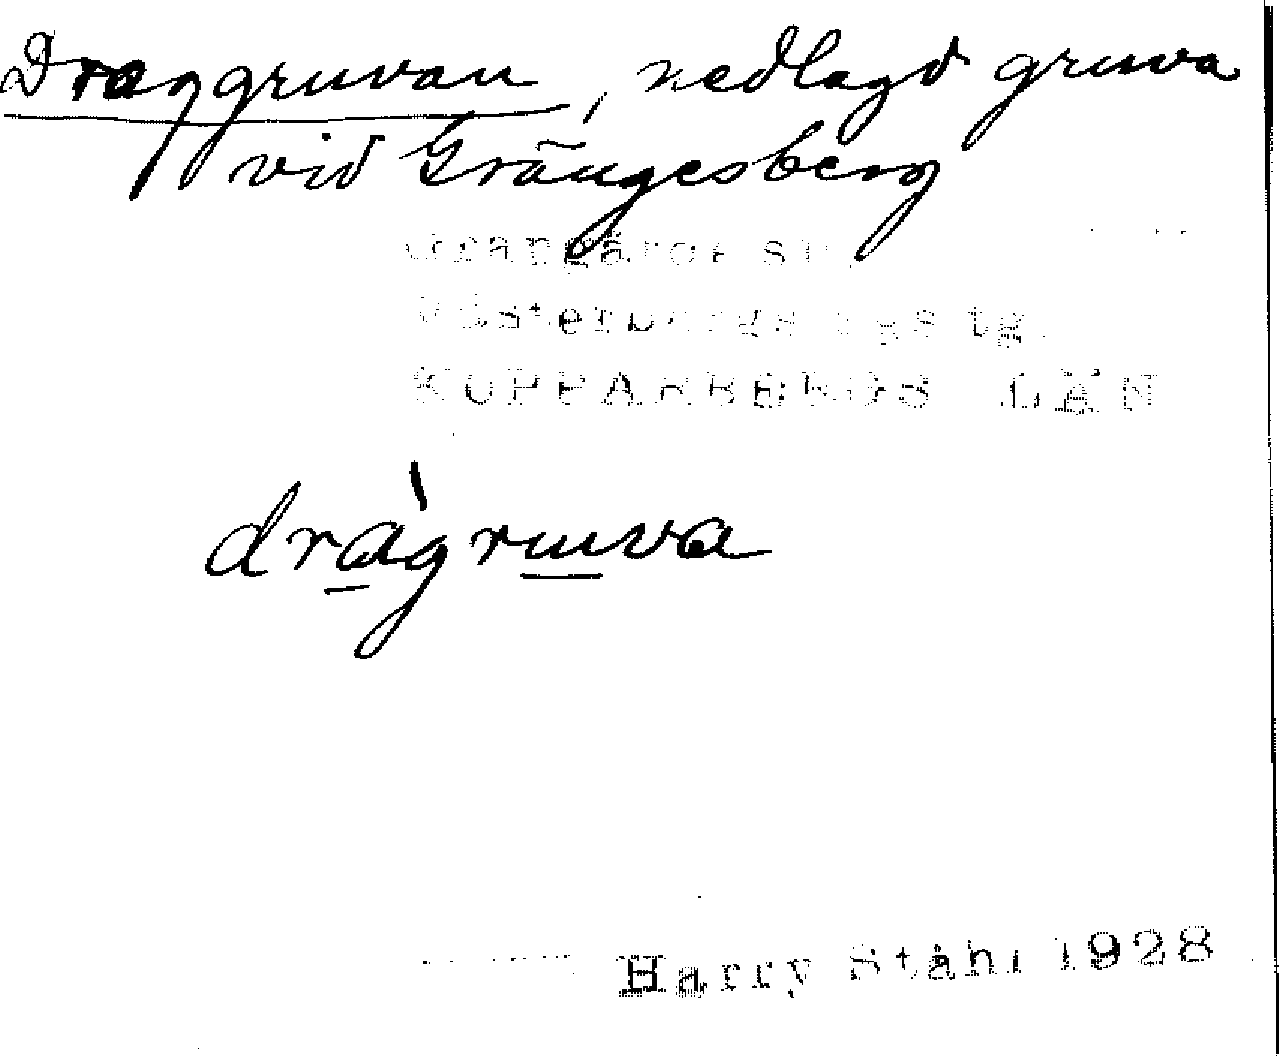 Draggruvan, nedlagd gruva
vid Grängesberg
Grangärde sn,
Västerbergs tgs tg.
KOPPARBERGS LÄN
dràgruva
Harry Ståhl 1928